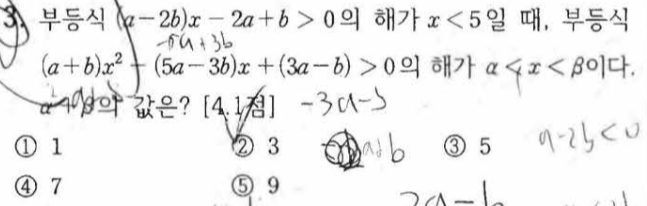 3. 부등식 (a-2b)x-2a+b>0의 해가 x<5일 때, 부등식
-5a+3b
(a+b)x²-(5a-3b)x+(3a-b)>0의 해가 α<x<β이다.
α+β의 값은? [4.1점] -3a-
① 1 ② 3 a+b ③ 5 a-2b<0
④ 7 ⑤ 9 2a-b